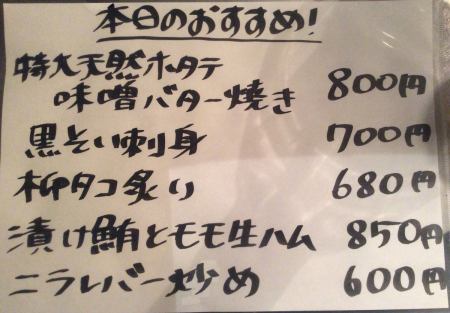 本日のおすすめ!
特大天然ホタテ
味噌バター焼き 800円
黒そい刺身 700円
柳タコ炙り 680円
漬け鮪とモモ生ハム 850円
ニラレバー炒め 600円